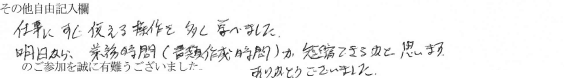 その他自由記入欄
仕事にすぐ使える操作を多く学べました。
明日から、業務時間(書類作成時間)が短縮できるかと思います。
のご参加を誠に有難うございました。
ありがとうございました。